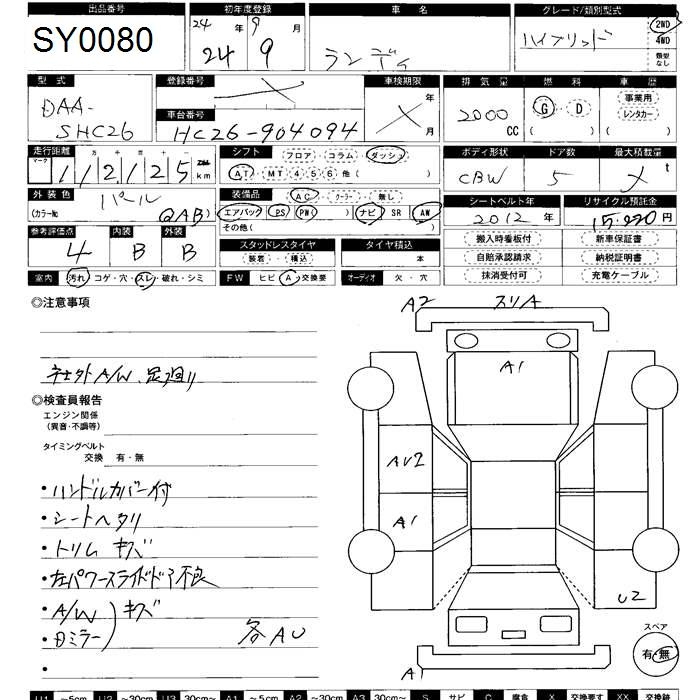 出品番号 初年度登録 車名 グレード/類別型式
SY0080 24年 9月 ランディ ハイブリッド 2WD
24 9 4WD
類型なし
型式 登録番号 車検期限 排気量 燃料 車歴
DAA- 年 2000 G・D 事業用
SHC26 車台番号 月 CC ( ) レンタカー
HC26-904094 ( )
走行距離 シフト フロア・コラム・ダッシュ ボディ形状 ドア数 最大積載量
マーク 十 万 千 百 十 一
112125 km AT・MT 4 5 6 他( ) CBW 5 t
外装色 パール 装備品 AC・クーラー・無し シートベルト年 リサイクル預託金
(カラーNo QAB) エアバック PS PW( ) ナビ SR AW 2012年 円
その他( )
参考評価点 内装 外装 スタッドレスタイヤ タイヤ積込 搬入時看板付 新車保証書
4 B B 装着・積込 本 自賠承認請求 納税証明書
室内 汚れ・コゲ・穴・スレ・破れ・シミ FW ヒビ・A・交換要 オーディオ 欠・穴 抹消受付可 充電ケーブル
◎注意事項
A2 スリA
社外A/W、足廻り
◎検査員報告
エンジン関係
(異音・不調等)
タイミングベルト
交換 有・無
A1
AU2
A1
・ハンドルカバー付
・シートヘタリ
・トリム キズ
・左パワースライドドア不良
・A/W キズ
・日ミラー 各AU
・
U2
A1
スペア
有・無
U1 ~5cm U2 ~30cm U3 30cm~ A1 ~5cm A2 ~30cm A3 30cm~ S サビ C 腐食 X 交換要す XX 交換跡